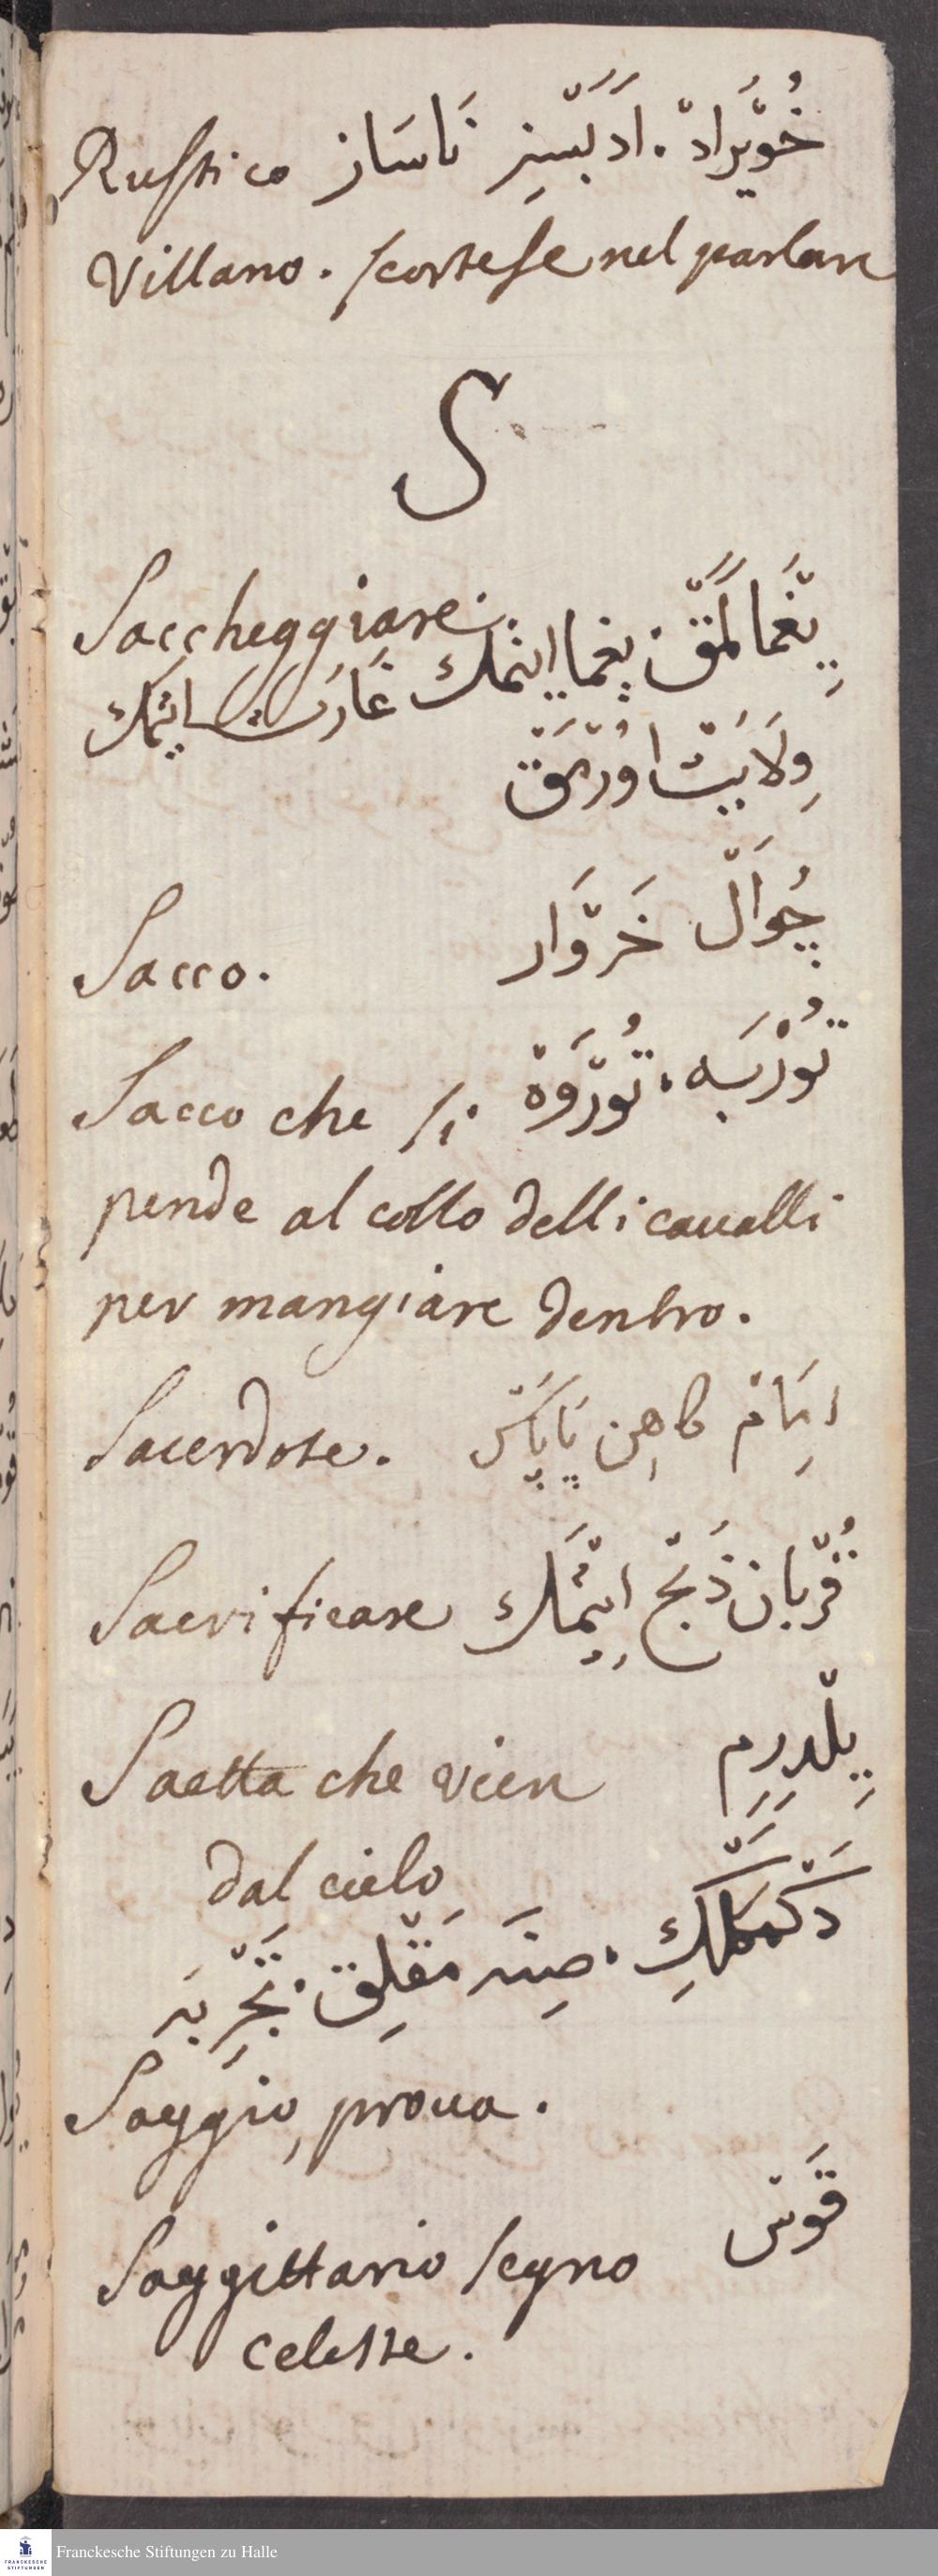 Rustico خُوْيَرادْ . اَدَبْسِز نَاسَاز
Villano . scortese nel parlare
S
Saccheggiare . يِغْمَالَمَقْ . يغما ايتمك غَارَت ايتمَك
وِلَايَتْ اوُرْمَقْ
Sacco . چُوَالْ خَرْوَار
Sacco che si تُوُرْبَه . تُوُرْوَهْ
pende al collo delli caualli
per mangiare dentro .
Sacerdote . اِمَامْ كاهِن پَاپَاسْ
Sacrificare قُرْبان ذَبْح اِيتْمَك
Saetta che vien يِلْدِرِم
dal cielo
دَكْمَكْلِك . صِنَه مَقْلِق . تَجْرِبَه
Saggio, proua .
Saggittario segno قَوس
celeste .
Franckesche Stiftungen zu Halle
FRANCKESCHE
STIFTUNGEN